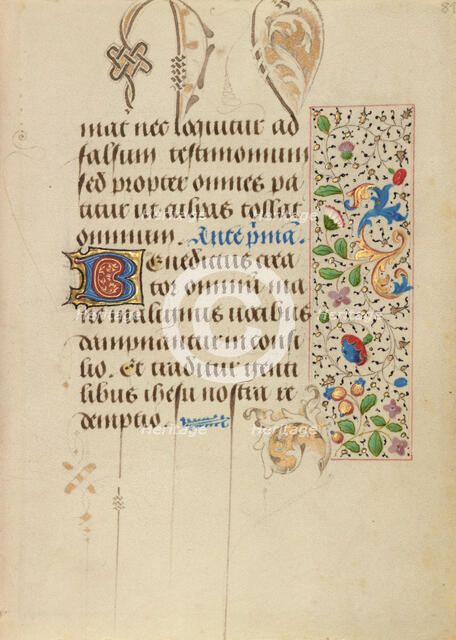 89
mat nec loquitur ad
falsum testimonium
sed propter omnes pa
titur ut culpas tollat
omnium. Ante p̄mā.
Benedictus crea
tor omniū ma
malignus vocibus
dampnatur in consi
lio. Et traditur genti
libus ihesu nostra re
demptio.
Heritage
Heritage
Heritage
Heritage